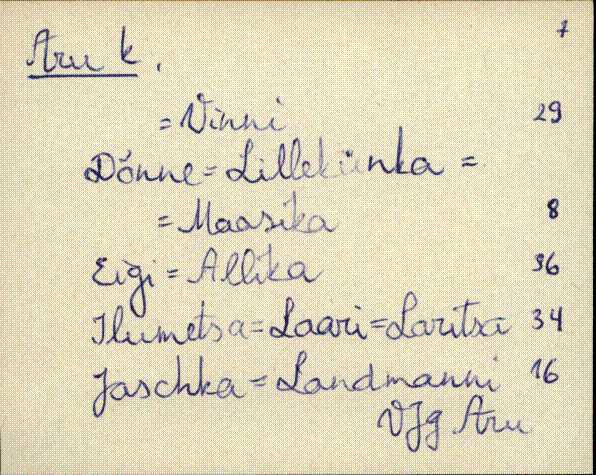 7
Aru k.
= Vinni 29
Dönne = Lillekünka =
= Maasika 8
Eigi = Allika 36
Ilumetsa = Laari = Laritsa 34
Jaschka = Landmanni 16
VJg Aru